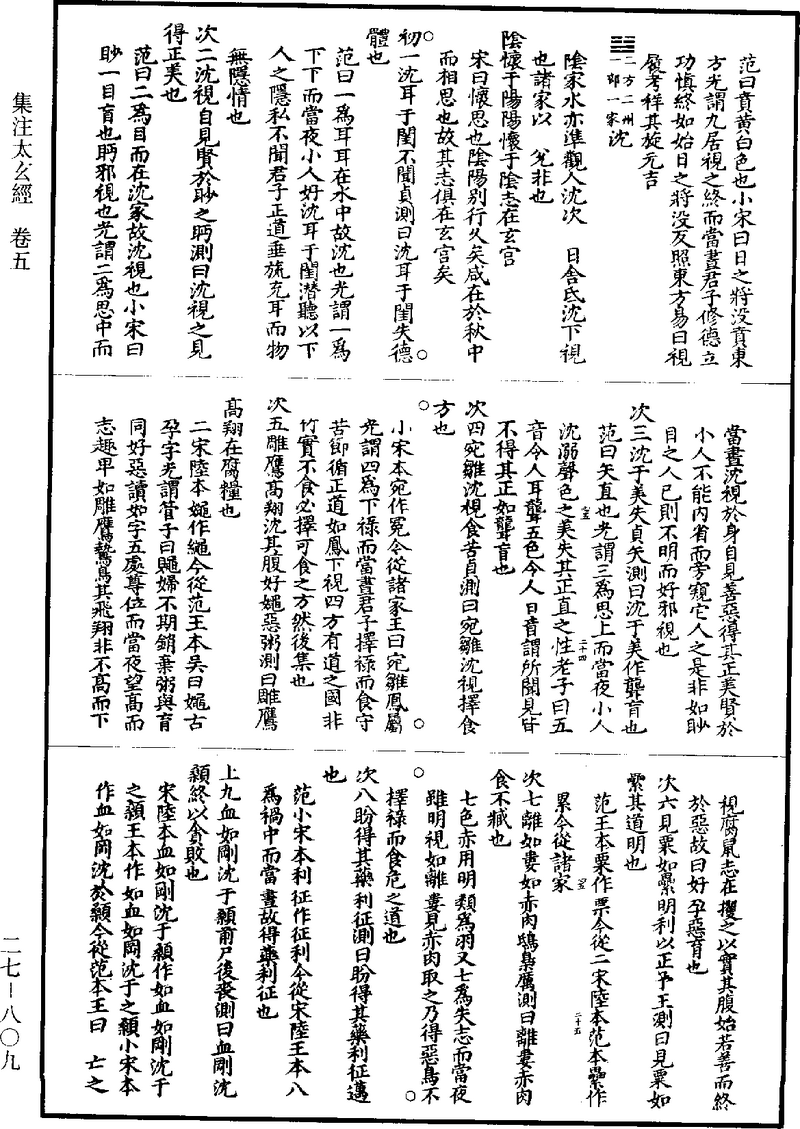 集注太幺經　卷五
范曰賁黄白色也小宋曰日之將没賁東
方光謂九居視之終而當晝君子修德立
功慎終如始日之將没反照東方易曰視
履考祥其旋元吉
䷓二方二州一部一家沈
陰家水亦準觀入沈次　日舍氐沈下視
也諸家以　兑非也
陰懷于陽陽懷于陰志在玄宫
宋曰懷思也陰陽别行久矣咸在於秋中
而相思也故其志俱在玄宫矣
初一沈耳于閨不聞貞測曰沈耳于閨失德
體也
范曰一爲耳耳在水中故沈也光謂一爲
下下而當夜小人好沈耳于閨潜聽以下
人之隱私不聞君子正道垂旒充耳而物
無隱情也
次二沈視自見賢於眇之眄測曰沈視之見
得正美也
范曰二爲目而在沈家故沈視也小宋曰
眇一目盲也眄邪視也光謂二爲思中而
當晝沈視於身自見善惡得其正美賢於
小人不能内省而旁窺它人之是非如眇
目之人已則不明而好邪視也
次三沈于美失貞矢測曰沈于美作聾盲也
范曰矢直也光謂三爲思上而當夜小人
沈溺聲色之美失其正直之性老子曰五
音令人耳聾五色令人目盲謂所聞見皆
不得其正如聾盲也
次四宛雛沈視食苦貞測曰宛雛沈視擇食
方也
小宋本宛作冤今從諸家王曰宛雛鳳屬
光謂四爲下祿而當晝君子擇禄而食守
苦節循正道如鳳下視四方有道之國非
竹實不食必擇可食之方然後集也
次五雕鷹高翔沈其腹好䵴惡粥測曰雕鷹
高翔在腐糧也
二宋陸本䵴作繩今從范王本吴曰䵴古
孕字光謂管子曰䵴婦不期銷棄粥與育
同好惡讀如字五處尊位而當夜望高而
志趣卑如雕鷹鷙鳥其飛翔非不高而下
視腐鼠志在攫之以實其腹始若善而終
於惡故曰好孕惡育也
次六見粟如纍明利以正于王測曰見粟如
纍其道明也
范王本粟作票今從二宋陸本范本纍作
累今從諸家
次七離如婁如赤肉鴟梟厲測曰離婁赤肉
食不臧也
七色赤用明類爲羽又七爲失志而當夜
雖明視如離婁見赤肉取之乃得惡鳥不
擇祿而食危之道也
次八盼得其藥利征測曰盼得其藥利征邁
也
范小宋本利征作征利今從宋陸王本八
爲禍中而當晝故得藥利征也
上九血如剛沈于顙前尸後喪測曰血剛沈
顙終以貪敗也
宋陸本血如剛沈于顙作如血如剛沈于
之顙王本作如血如岡沈于之顙小宋本
作血如岡沈於顙今從范本王曰　亡之
二七—八〇九